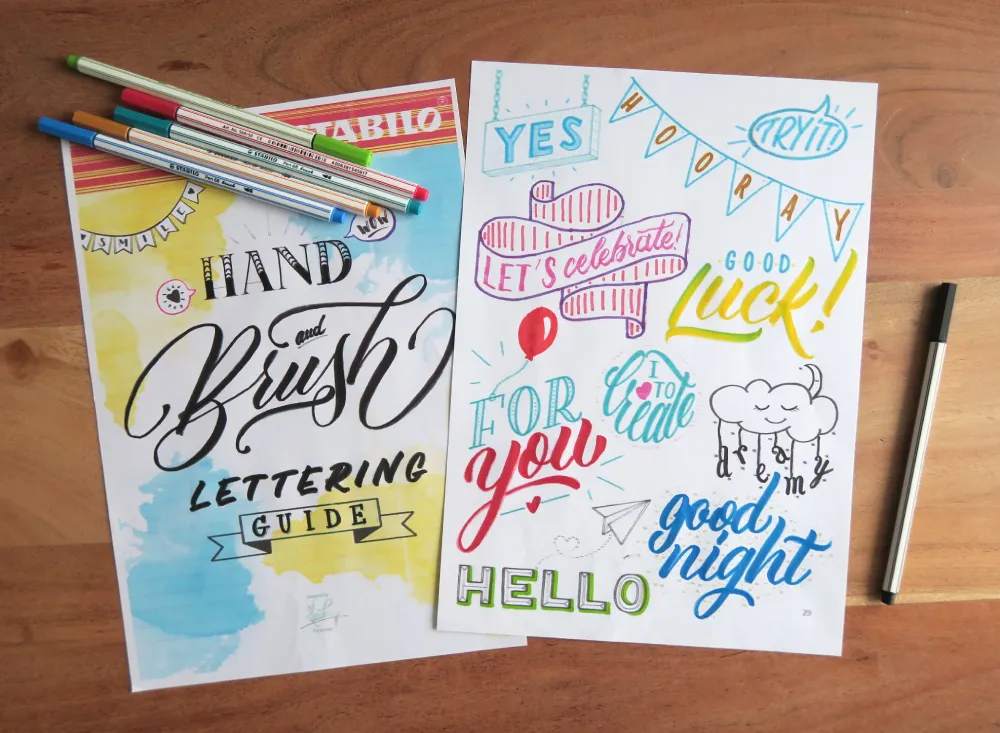 STABILO
SMILE
WOW
HAND
and
Brush
LETTERING
GUIDE
YES
HOORAY
TRY IT!
LET'S celebrate!
GOOD
Luck!
FOR
you
I
TO
Create
dreamy
good
night
HELLO
29